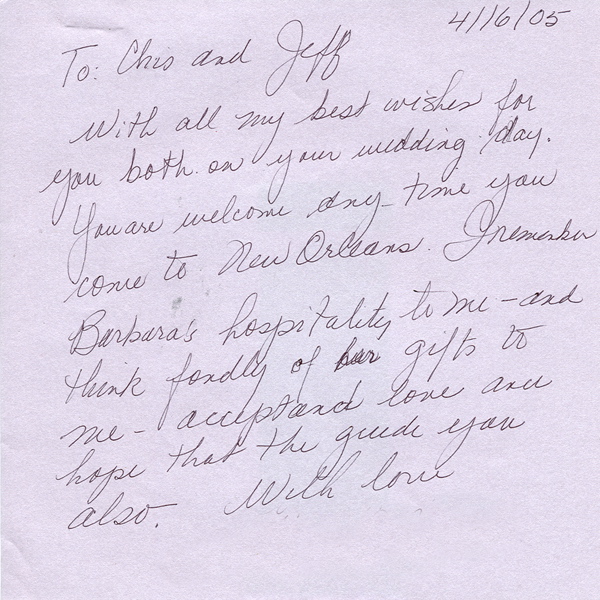 4/16/05
To: Chis and Jeff
With all my best wishes for
you both on your wedding day.
You are welcome any-time you
come to New Orleans. I remember
Barbara's hospitality to me - and
think fondly of her gifts to
me - accept and love and
hope that the guide you
also. With love